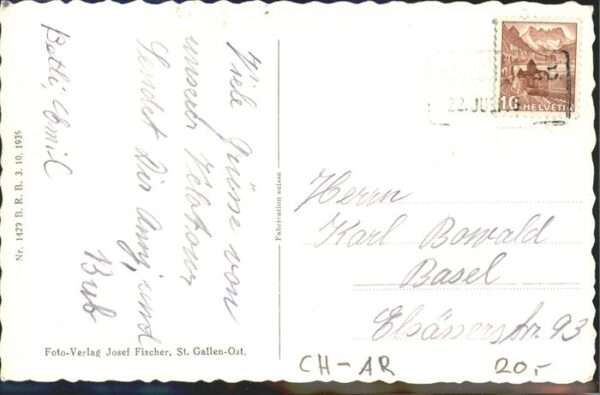 Viele Grüsse von
unserer Velotour
Sendet Dir Anny, und
Bub
Betli, Emil
Nr. 1429 B. R. B. 3. 10. 1939
Foto-Verlag Josef Fischer, St. Gallen-Ost.
Fabrication suisse
10
HELVETIA
22. JUL
Herrn
Karl Bowald
Basel
Elsässerstr. 93
CH-AR
20,-